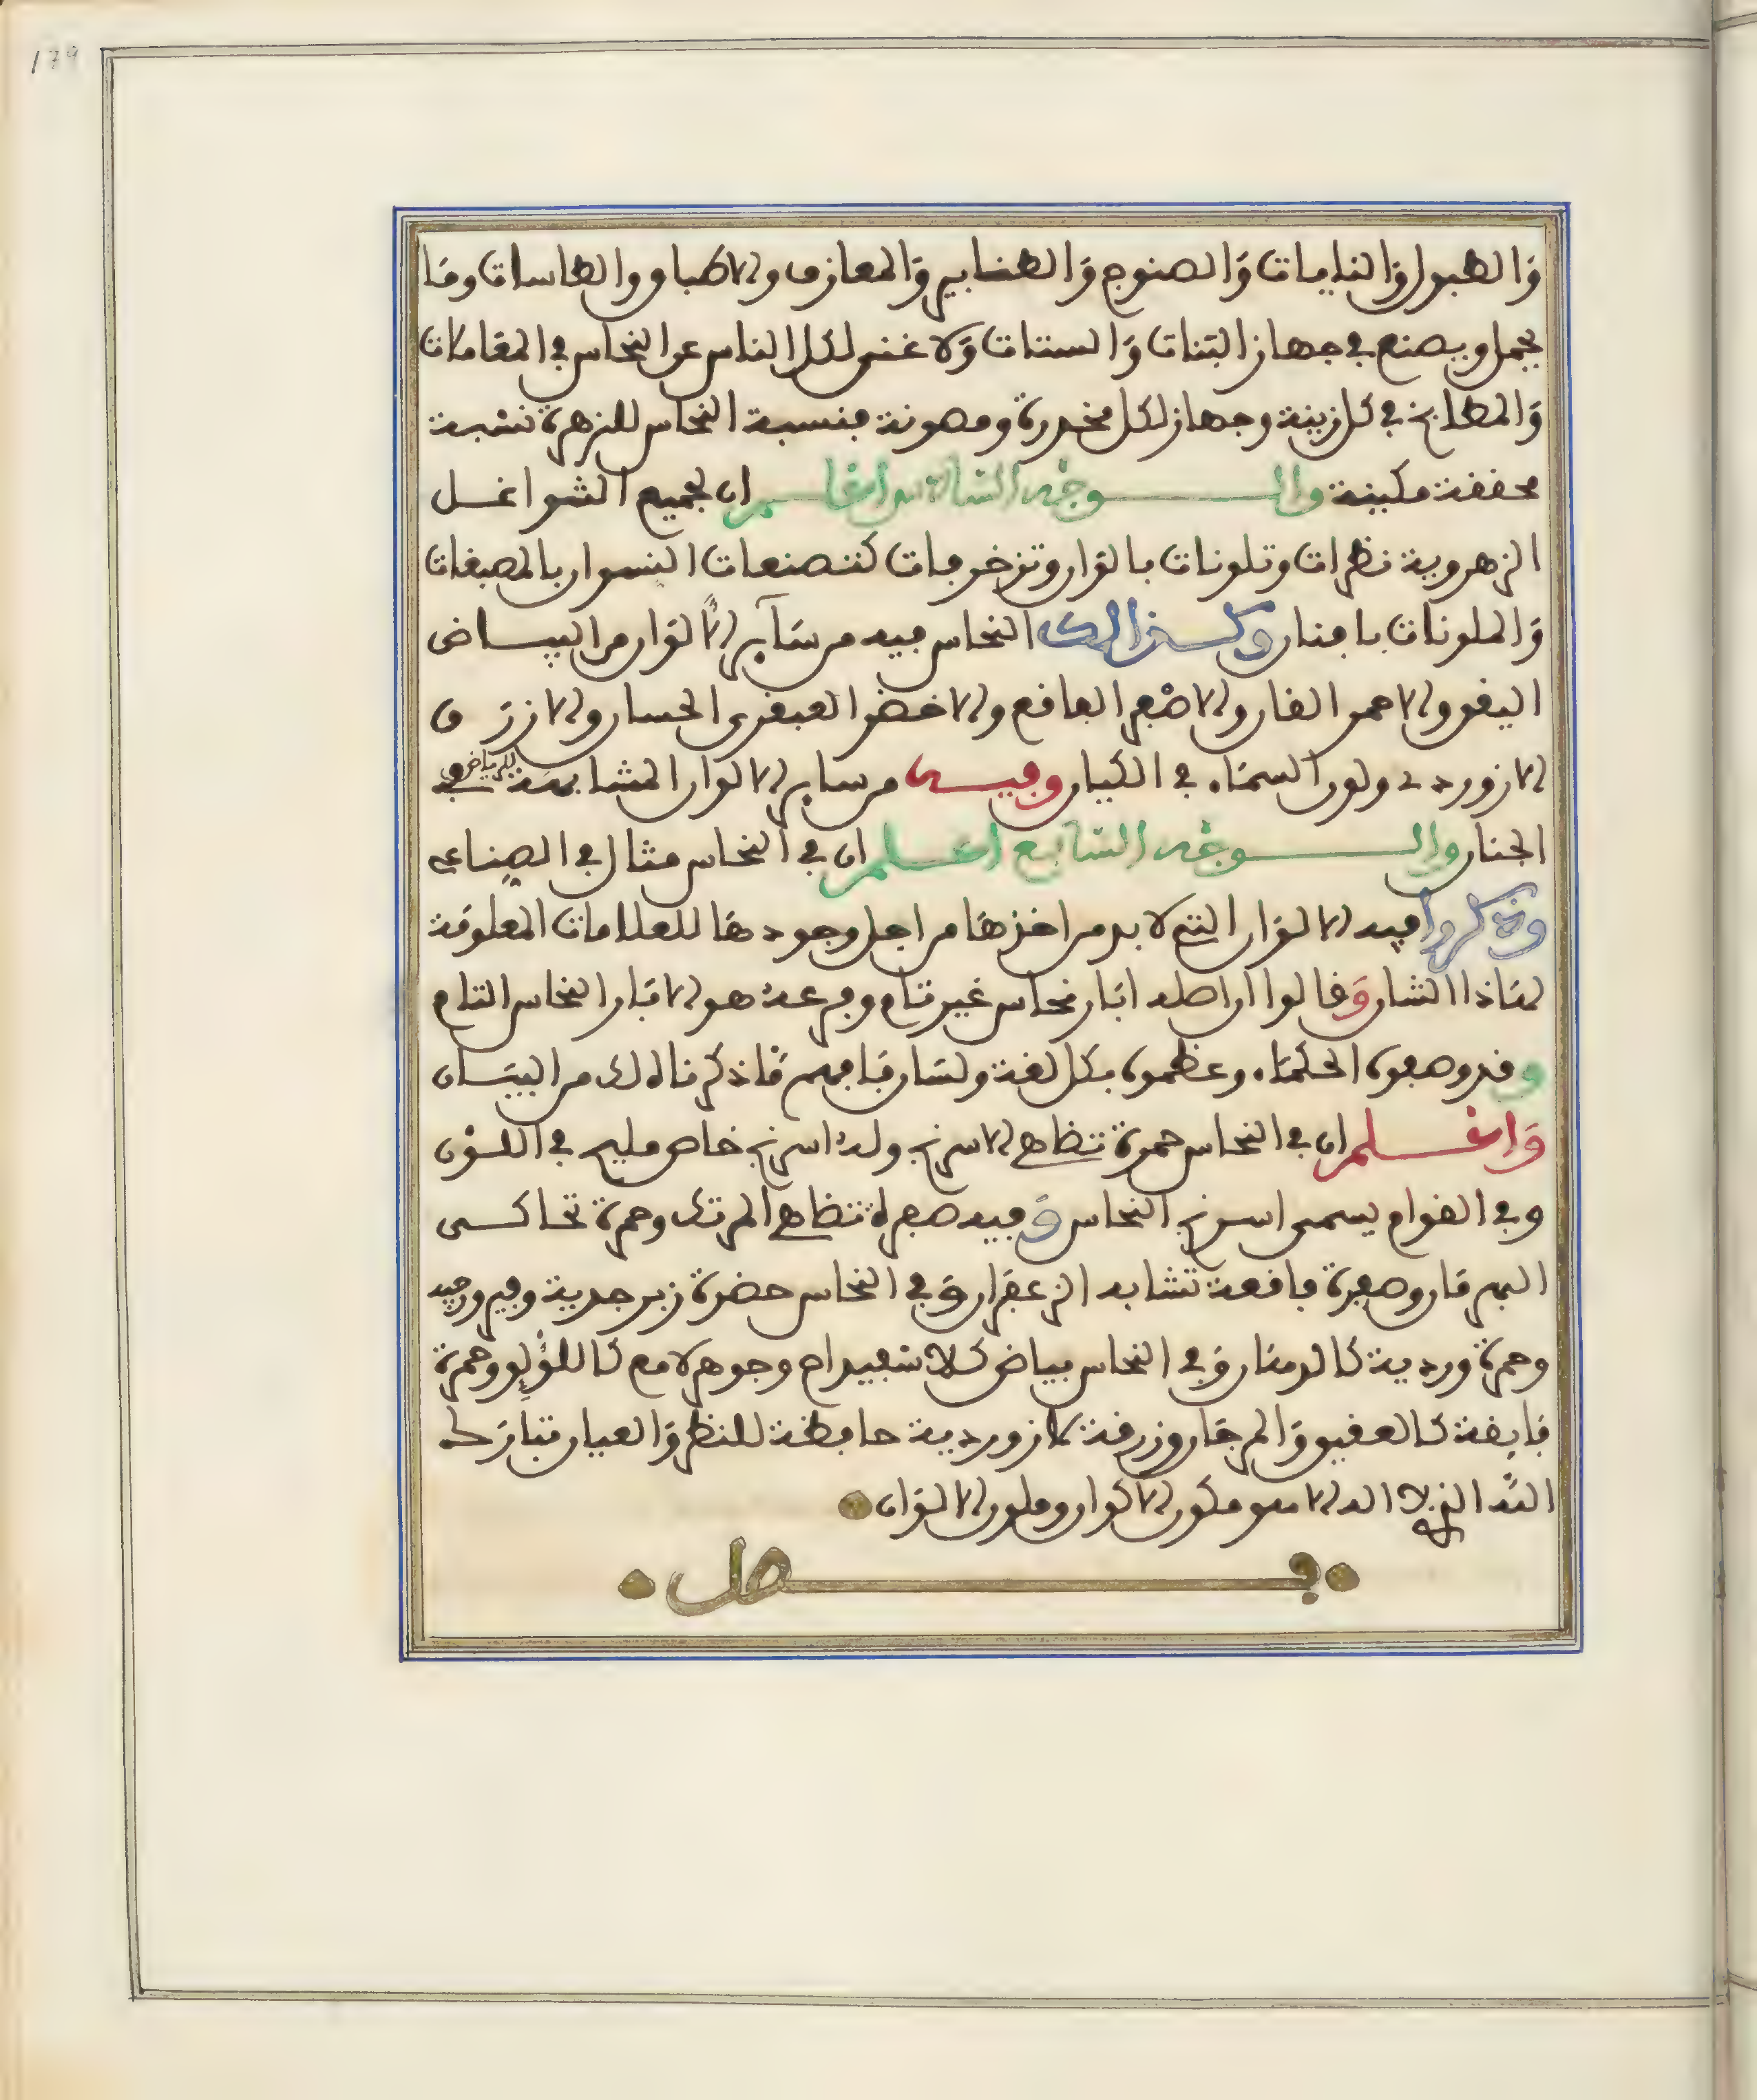 179
والطبول والنايات والصنوج والطنابير والمعازف والاطباق والطاسات وما
يجمل ويصنع في جهاز البنات والستات ولا غنى لكل الناس عن النحاس في المقامات
والمطابخ في كل زينة وجهاز لكل مخدرة ومصونة فنسبة النحاس للزهرة نسبة
محققة مكينة والوجه السادس اعلم ان لجميع الشواغل
الزهروية نظرات وتلونات بالوان وتزخرفات كتصنعات النسوان بالمصبغات
والملونات بافنان وكذالك النحاس فيه من سآير الالوان من البياض
اليقق والاحمر القان والاصفر الفاقع والاخضر العبقري الحسان والازرق
لازوردي ولون السماء في الكيان وفيه من ساير الالوان المشابهة للرياض في
الجنان والوجه السابع اعلم ان في النحاس مثال في الصناعه
وذكروا فيه الالوان التي لا بد من اخذها من اجل وجودها للعلامات المعلومة
لهاذا الشان وقالوا ان اصله ابار نحاس غير تام وفرعه هو الابار النحاس التام
وقد وصفوه الحكماء وعظموه بكل لغة ولسان فافهم ماذكرناه لك من البيان
واعلم ان في النحاس حمرة تضاهي الاسرنج وله اسرنج خاص مليح في اللون
وفي القوام يسمى اسرنج النحاس وفيه صفرة تضاهي المرتك وحمرة تحاكى
البهرمان وصفرة فاقعة تشابه الزعفران وفي النحاس خضرة زبرجدية وفيروزجيه
وحمرة وردية كالرمان وفي النحاس بياض كالاسفيداج وجوهر لامع كاللؤلؤ وحمرة
فايقة كالعقيق والمرجان وزرقة لازوردية حافظة للنظر والعيان تبارك
الله الذي لا اله الا هو مكون الاكوان وملون الالوان
فصل